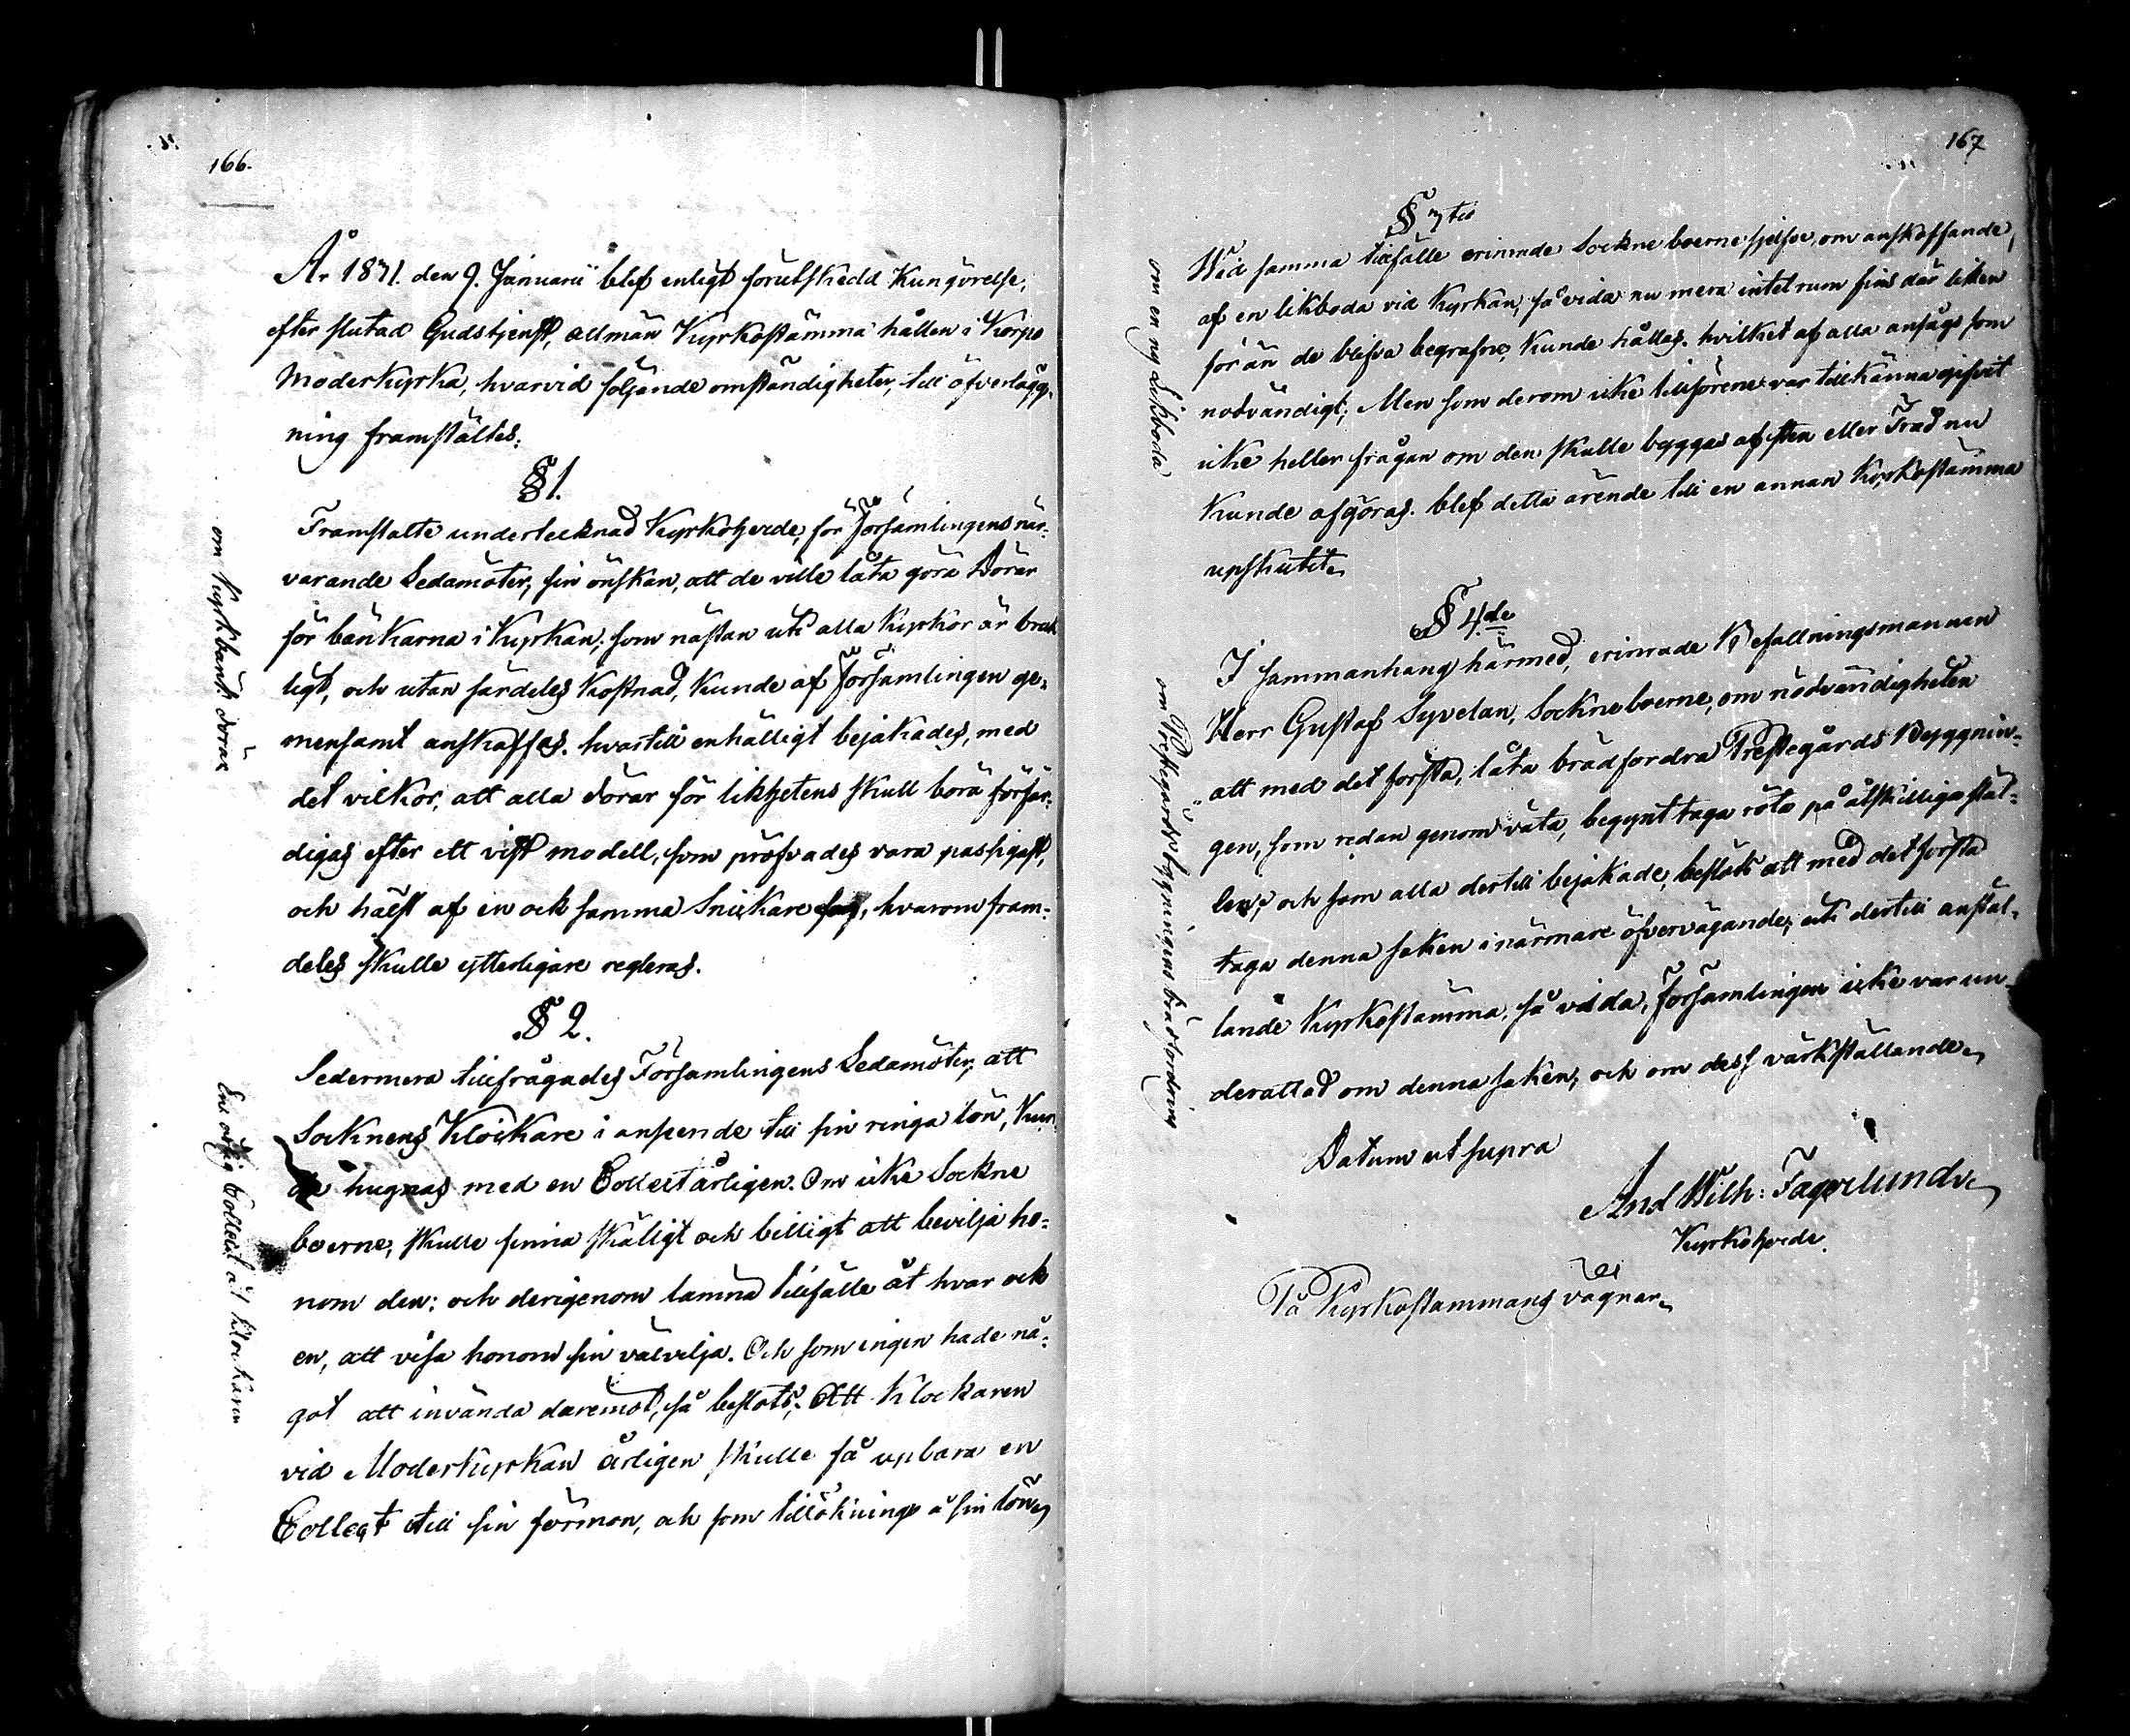 166.
År 1831. den 9. Januarii blef enligt förutskedd Kungörelse,
efter slutad Gudstjenst, allmän Kyrkostämma hållen i Korpo
Moderkyrka, hvarvid följande omständigheter, till öfverlägg-
ning framstältes:
§ 1.
om Kyrkbänk. dörar
Framstalte undertecknad Kyrkoherde, för Församlingens när-
varande Ledamöter, sin önskan, att de ville låta göra Dörar
för bänkarna i Kyrkan; som nästan uti alla Kyrkor är bruk
ligt, och utan särdeles Kostnad, kunde af Församlingen ge-
mensamt anskaffas. hvartill enhälligt bejakades, med
det vilkor, att alla dörar för likhetens skull böra förfär-
digas efter ett vist modell, som pröfvades vara passigast,
och hälst af en och samma Snickare, hvarom fram-
deles skulle ytterligare regleras.
§ 2.
En årlig Collect åt klockaren
Sedermera tillfrågades Församlingens Ledamöter, att
Socknens Klockare i anseende till sin ringa lön, Kun-
de hugnas med en Collect årligen. Om icke Sockne
boerne, skulle finna skäligt och billigt att bevilja ho-
nom den: och derigenom lämna tillfälle åt hvar och
en, att visa honom sin välvilja. Och som ingen hade nå-
got att invända däremot, så beslöts: Att Klockaren
vid Moderkyrkan årligen skulle få upbära en
Collect till sin förmon, och som tillökning å sin lön.
167
§ 3tio
om en ny Likboda
Wid samma tillfälle erinrade Sockneboerne sjelfve, om anskaffande,
af en likboda vid Kyrkan, så vida nu mera intet rum fins där liken
för än de blifva begrafne, kunde hållas. hvilket af alla ansågs som
nödvändigt; Men som derom icke tillförene var tillkänna gifvit
icke heller frågan om den skulle byggas af sten eller Träd nu
kunde afgöras. blef detta ärende till en annan Kyrkostämma
upskutit.
§ 4de
om Prestegårdsbyggningens brädfordring
I sammanhang härmed, erinrade Befallningsmannen
Herr Gustaf Syvelan, Sockneboerne, om nödvändigheten
att med det första, låta brädfordra Prestegårds Byggnin-
gen, som redan genom väta, begynt taga röta på åtskilliga stäl-
len; och som alla dertill bejakade, beslöts att med det första
taga denna saken i närmare öfvervägande, uti dertill anstäl-
lande Kyrkostämma, så vida, Församlingen icke var un-
derättad om denna saken, och om dess värkställande.
Datum ut supra
And Wilh: Fagerlund
Kyrkoherde.
På Kyrkostämmans vägnar.